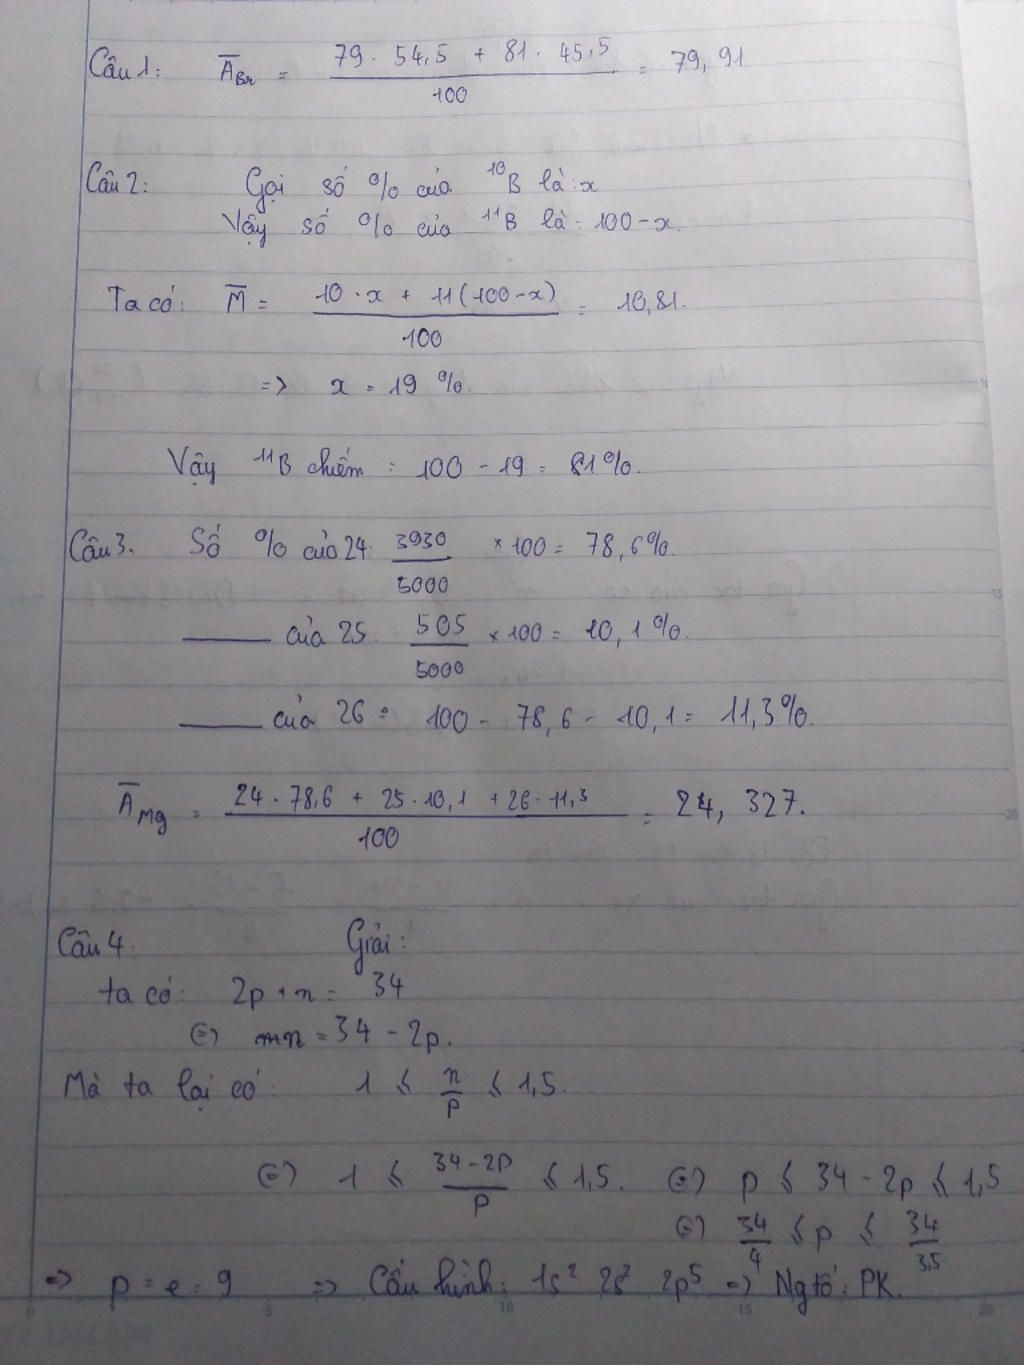 Câu 1: A̅Br = (79 . 54,5 + 81 . 45,5)/100 = 79,91
Câu 2: Gọi số % của ¹⁰B là: x
Vậy số % của ¹¹B là: 100 - x.
Ta có: M̅ = (10 . x + 11(100 - x))/100 = 10,81.
=> x = 19 %.
Vậy ¹¹B chiếm : 100 - 19 = 81%.
Câu 3. Số % của 24: 3930/5000 × 100 = 78,6%.
—— của 25. 505/5000 × 100 = 10,1%.
—— của 26 = 100 - 78,6 - 10,1 = 11,3%.
A̅Mg = (24 . 78,6 + 25 . 10,1 + 26 . 11,3)/100 = 24,327.
Câu 4: Giải:
ta có: 2p + n = 34
(=) n = 34 - 2p.
Mà ta lại có: 1 ≤ n/p ≤ 1,5.
(=) 1 ≤ (34 - 2p)/p ≤ 1,5. (=) p ≤ 34 - 2p ≤ 1,5
(=) 34/4 ≤ p ≤ 34/3,5
=> p = e = 9 => Cấu hình: 1s² 2s² 2p⁵ => Ng tố: PK.